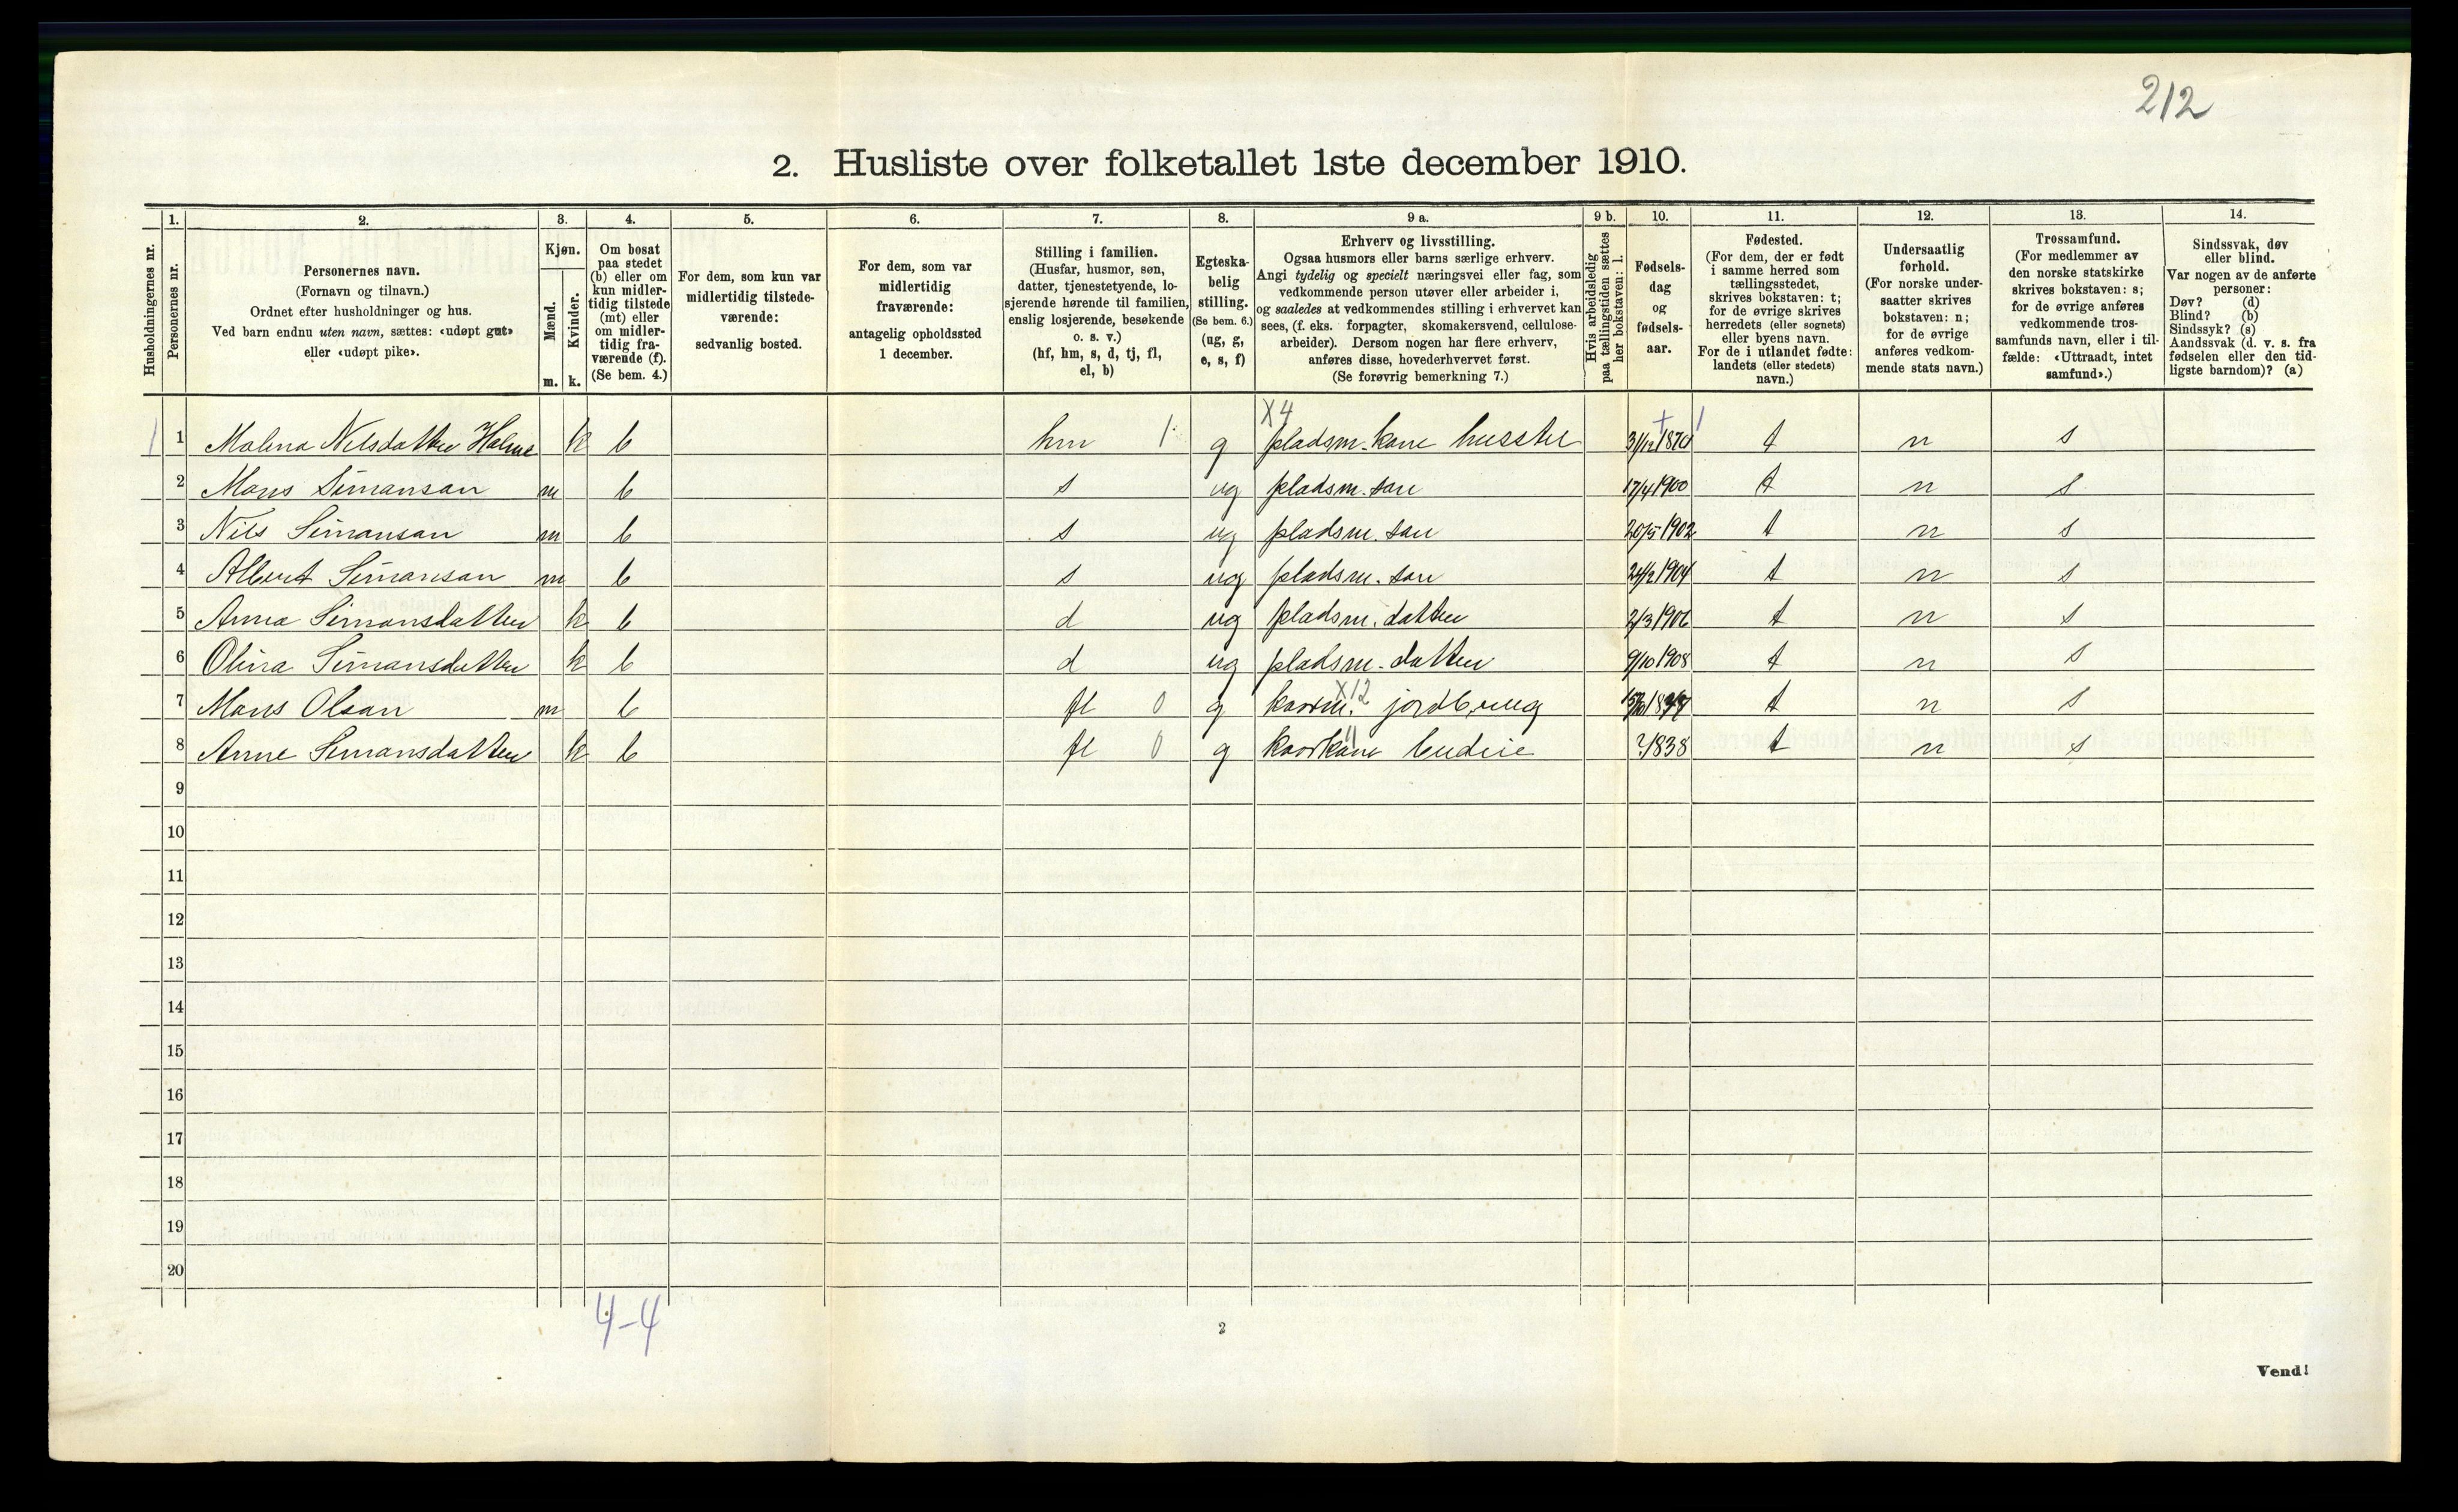 212
2. Husliste over folketallet 1ste december 1910.
1. 2. 3. 4. 5. 6. 7. 8. 9 a. 9 b. 10. 11. 12. 13. 14.
Husholdningernes nr.
Personernes nr.
Personernes navn.
(Fornavn og tilnavn.)
Ordnet efter husholdninger og hus.
Ved barn endnu uten navn, sættes: «udøpt gut»
eller «udøpt pike».
Kjøn.
Mænd.
Kvinder.
m. k.
Om bosat
paa stedet
(b) eller om
kun midler-
tidig tilstede
(mt) eller
om midler-
tidig fra-
værende (f).
(Se bem. 4.)
For dem, som kun var
midlertidig tilstede-
værende:
sedvanlig bosted.
For dem, som var
midlertidig
fraværende:
antagelig opholdssted
1 december.
Stilling i familien.
(Husfar, husmor, søn,
datter, tjenestetyende, lo-
sjerende hørende til familien,
enslig losjerende, besøkende
o. s. v.)
(hf, hm, s, d, tj, fl,
el, b)
Egteska-
belig
stilling.
(Se bem. 6.)
(ug, g,
e, s, f)
Erhverv og livsstilling.
Ogsaa husmors eller barns særlige erhverv.
Angi tydelig og specielt næringsvei eller fag, som
vedkommende person utøver eller arbeider i,
og saaledes at vedkommendes stilling i erhvervet kan
sees, (f. eks. forpagter, skomakersvend, cellulose-
arbeider). Dersom nogen har flere erhverv,
anføres disse, hovederhvervet først.
(Se forøvrig bemerkning 7.)
Hvis arbeidsledig
paa tællingstiden sættes
her bokstaven: l.
Fødsels-
dag
og
fødsels-
aar.
Fødested.
(For dem, der er født
i samme herred som
tællingsstedet,
skrives bokstaven: t;
for de øvrige skrives
herredets (eller sognets)
eller byens navn.
For de i utlandet fødte:
landets (eller stedets)
navn.)
Undersaatlig
forhold.
(For norske under-
saatter skrives
bokstaven: n;
for de øvrige
anføres vedkom-
mende stats navn.)
Trossamfund.
(For medlemmer av
den norske statskirke
skrives bokstaven: s;
for de øvrige anføres
vedkommende tros-
samfunds navn, eller i til-
fælde: «Uttraadt, intet
samfund».)
Sindssvak, døv
eller blind.
Var nogen av de anførte
personer:
Døv? (d)
Blind? (b)
Sindssyk? (s)
Aandssvak (d. v. s. fra
fødselen eller den tid-
ligste barndom)? (a)
X4
1 1 Malena Nilsdatter Holme k b hm 1 g pladsm. kone husstel 31/12 1870 t n s
2 Mons Simonson m b s ug pladsm. søn 17/4 1900 t n s
3 Nils Simonson m b s ug pladsm. søn 20/5 1902 t n s
4 Albert Simonson m b s ug pladsm. søn 1904 t n s
5 Anna Simonsdatter k b d ug pladsm. datter 2/3 1906 t n s
6 Olina Simonsdatter k b d ug pladsm. datter 9/10 1908 t n s
X12
7 Mons Olson m b fl 0 g kaarm. jordbrug t n s
8 Anne Simonsdatter k b fl 0 g kaarkone budeie ?/1838 t n s
9
10
11
12
13
14
15
16
17
18
19
20
4-4
2
Vend!